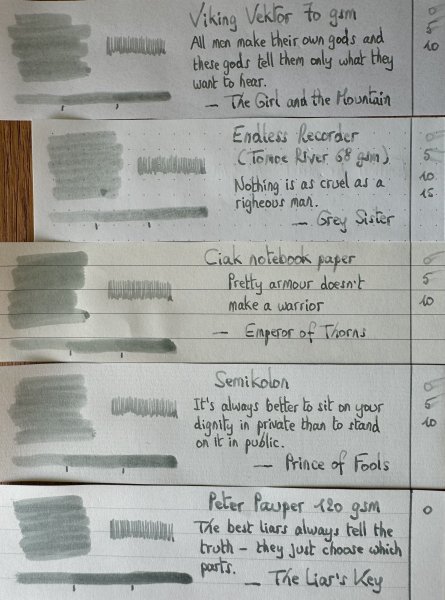 Viking Vektor 70 gsm
0
All men make their own gods and
5
these gods tell them only what they
10
want to hear.
— The Girl and the Mountain
Endless Recorder
0
(Tomoe River 68 gsm)
5
Nothing is as cruel as a
10
righeous man.
15
— Grey Sister
Ciak notebook paper
0
Pretty armour doesn't
5
make a warrior
10
— Emperor of Thorns
Semikolon
0
It's always better to sit on your
5
dignity in private than to stand
10
on it in public.
— Prince of Fools
Peter Pauper 120 gsm
0
The best liars always tell the
truth – they just choose which
parts.
— The Liar's Key